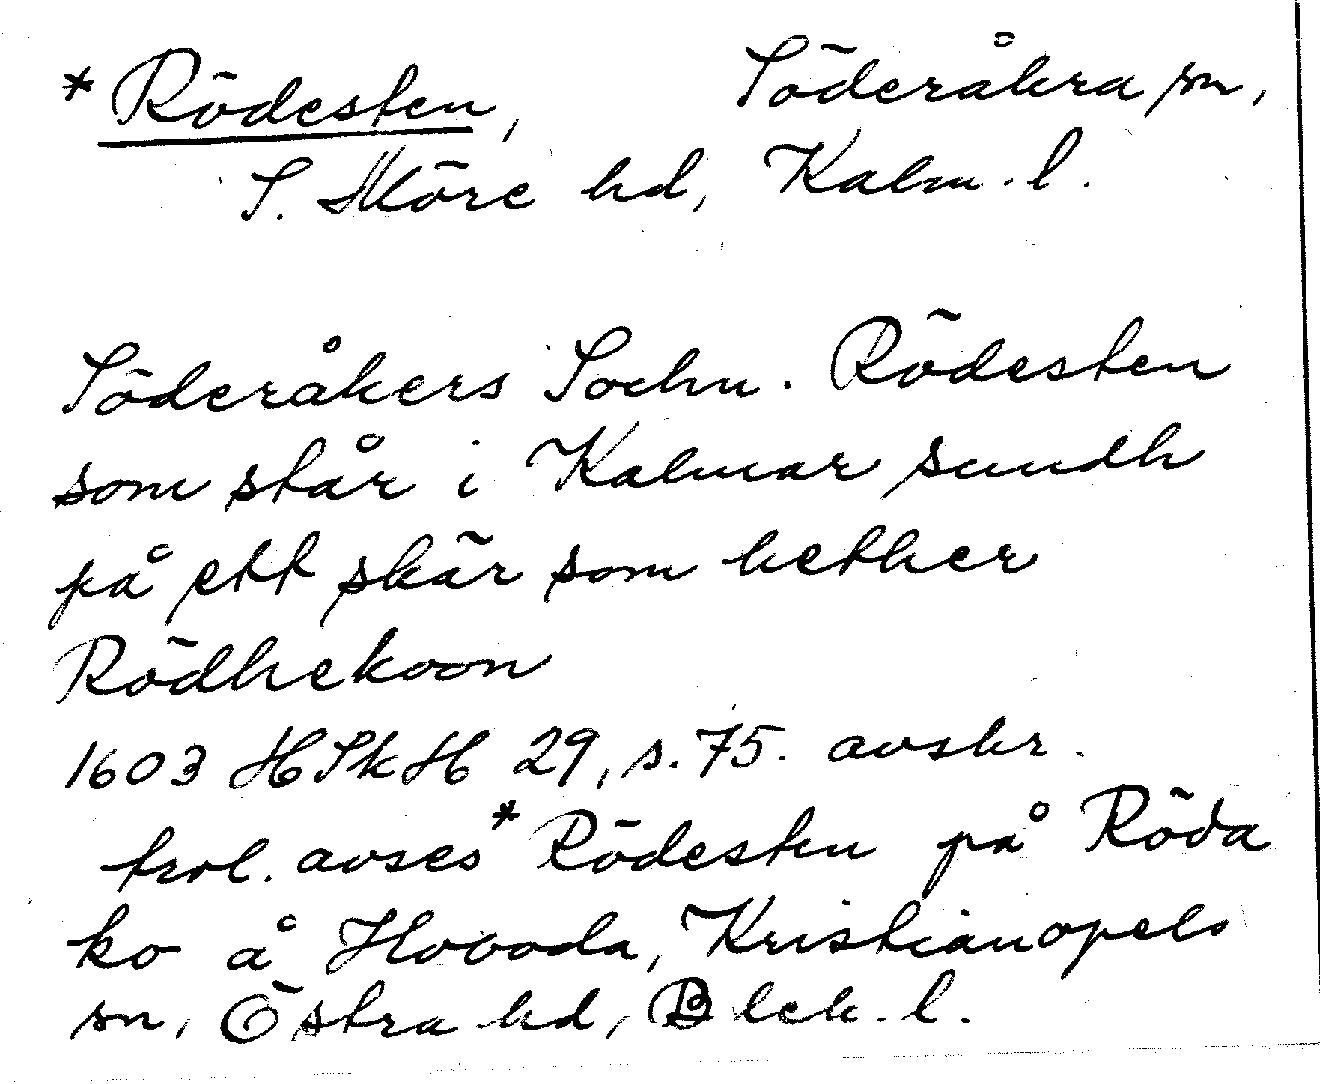 *Rödesten, Söderåkra sn,
S. Möre hd, Kalm. l.
Söderåkers Sochn. Rödesten
som står i Kalmar sundh
på ett skär som hether
Rödhekoon
1603 HSkH 29, s. 75. avskr.
trol. avses *Rödesten på Röda
ko å Hovoda, Kristianopels
sn, Östra hd, Blek. l.